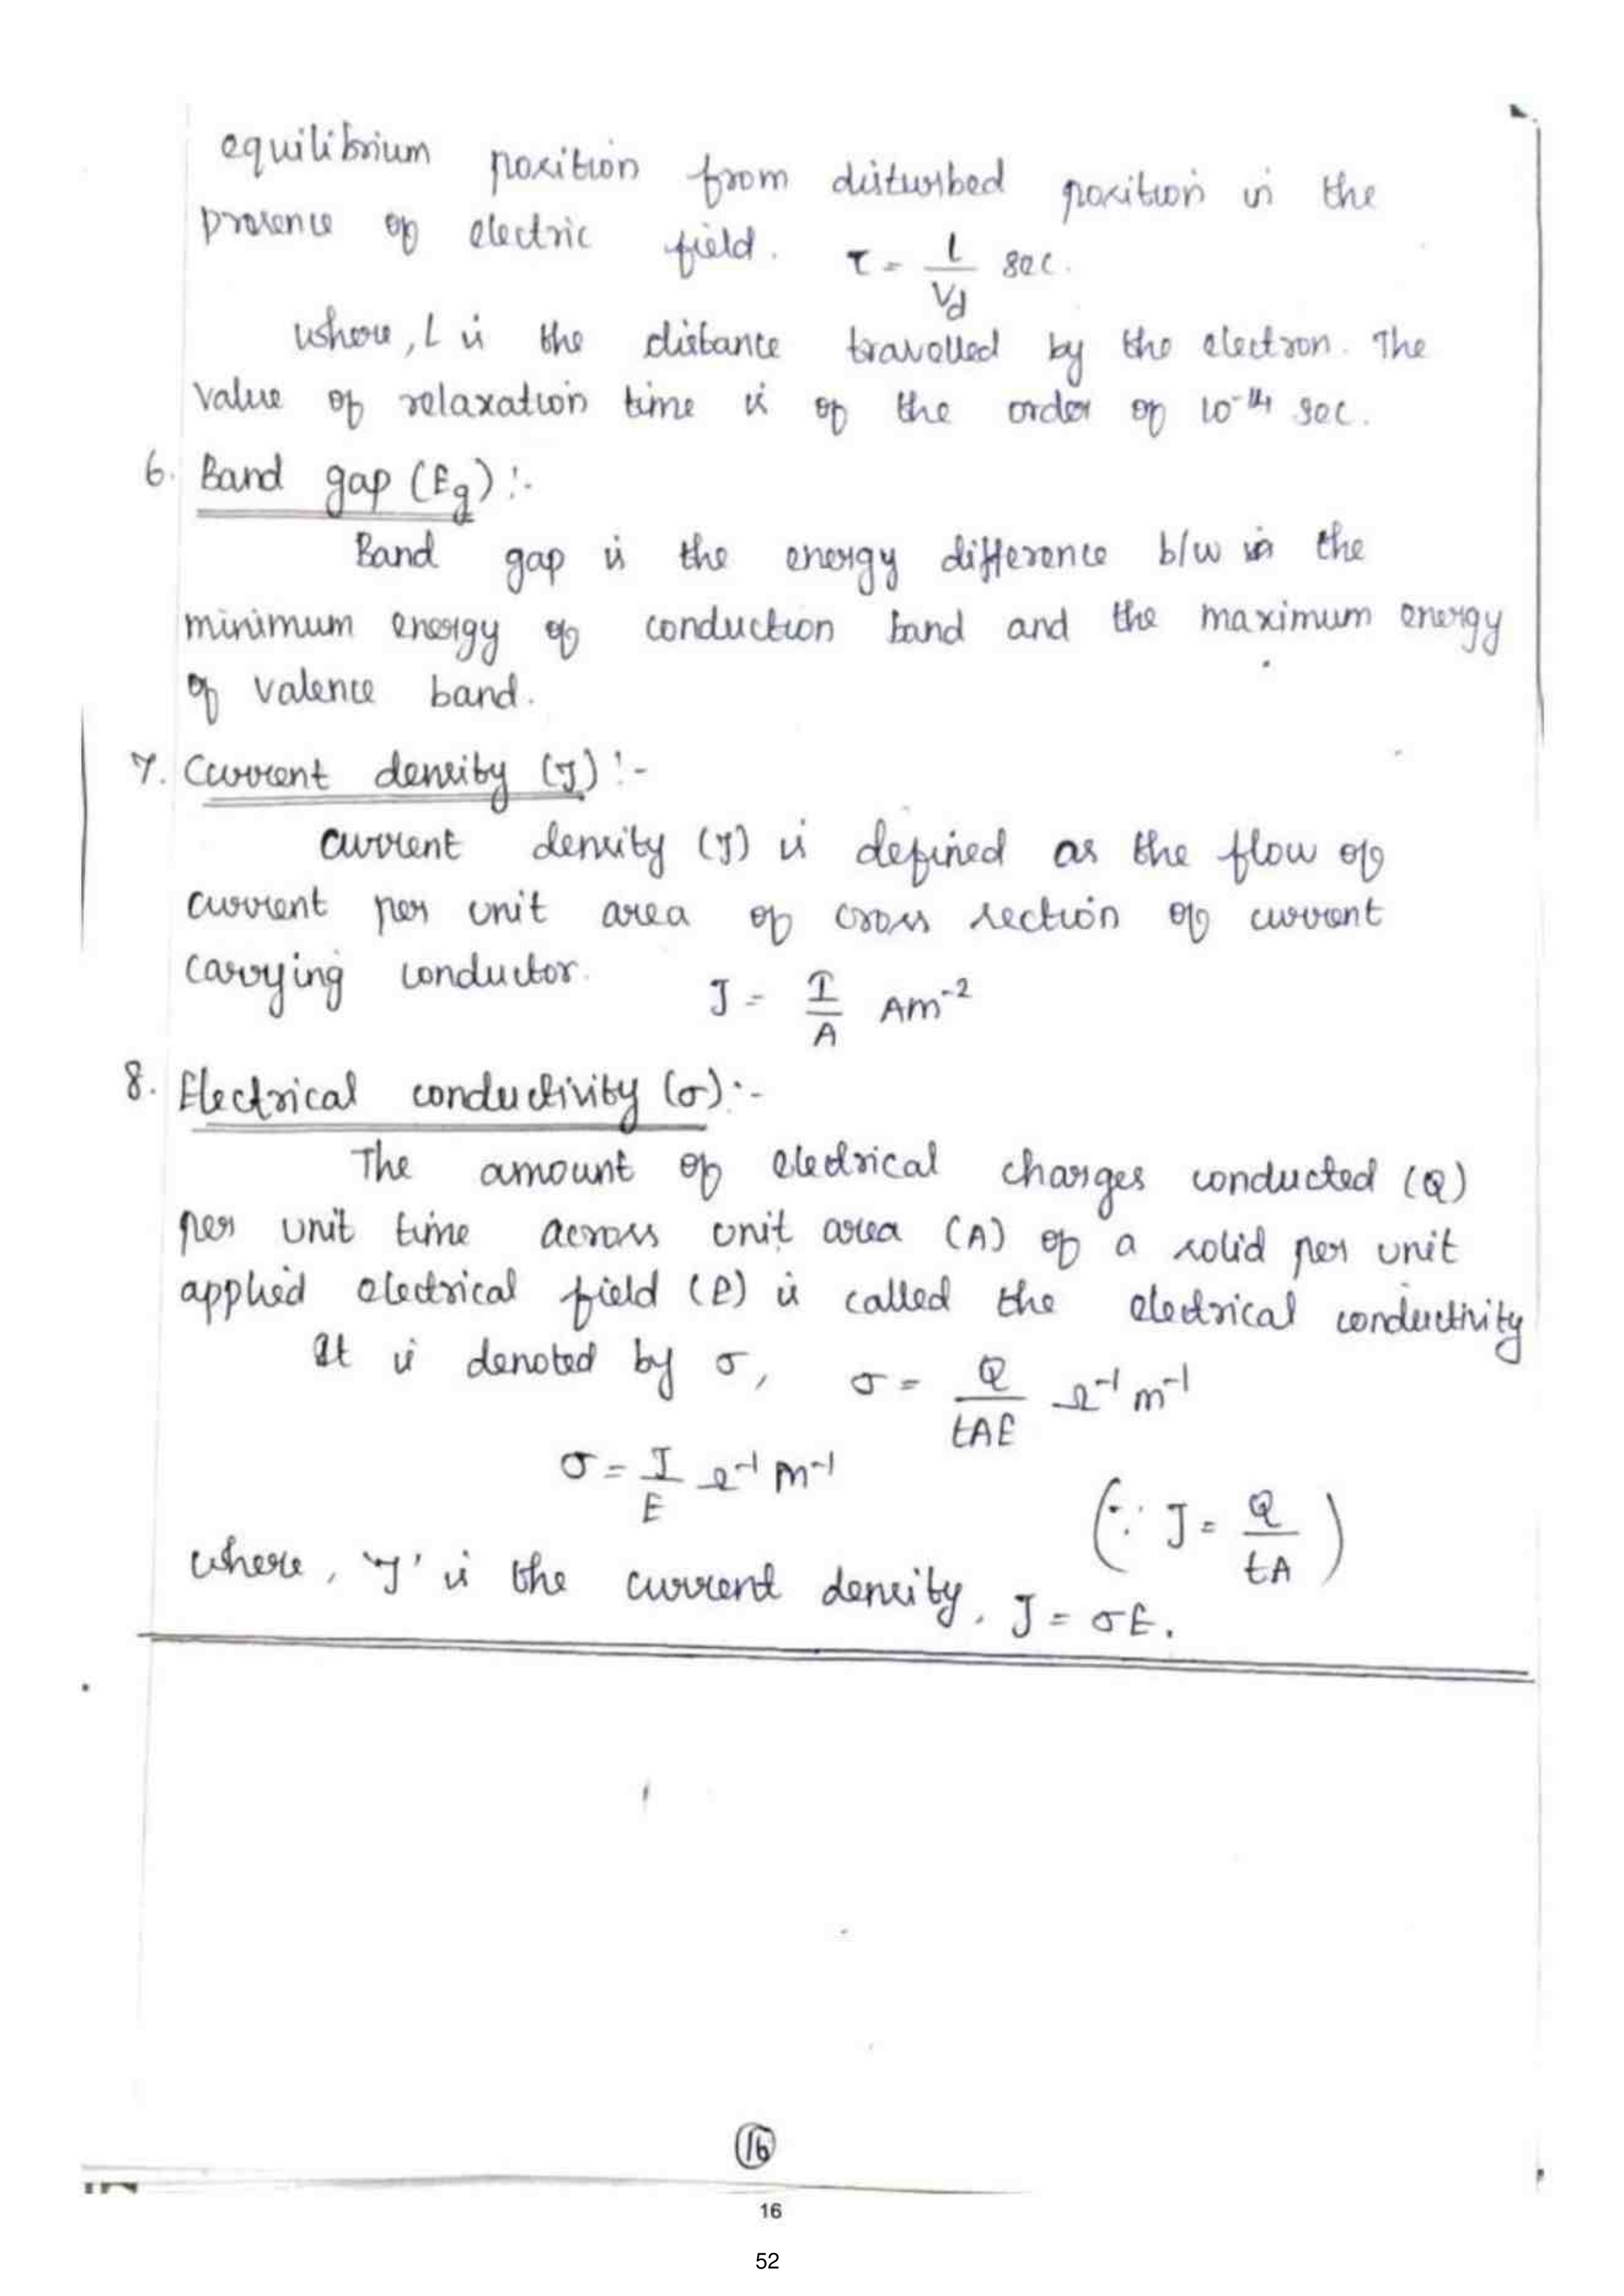 equilibrium position from disturbed position in the
presence of electric field. τ = L/Vd sec.
where, L is the distance travelled by the electron. The
value of relaxation time is of the order of 10⁻¹⁴ sec.
6. Band gap (Eg):-
Band gap is the energy difference b/w in the
minimum energy of conduction band and the maximum energy
of valence band.
7. Current density (J):-
Current density (J) is defined as the flow of
current per unit area of cross section of current
carrying conductor. J = I/A Am⁻²
8. Electrical conductivity (σ):-
The amount of electrical charges conducted (Q)
per unit time across unit area (A) of a solid per unit
applied electrical field (E) is called the electrical conductivity
It is denoted by σ, σ = Q/tAE Ω⁻¹ m⁻¹
σ = J/E Ω⁻¹ m⁻¹
(∵ J = Q/tA)
where, 'J' is the current density, J = σE.
16
16
52